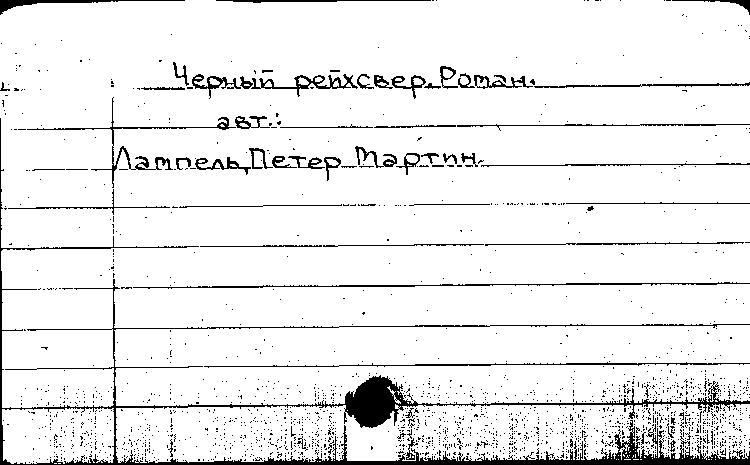 Черный рейхсвер. Роман.
авт.:
Лампель, Петер Мартин.